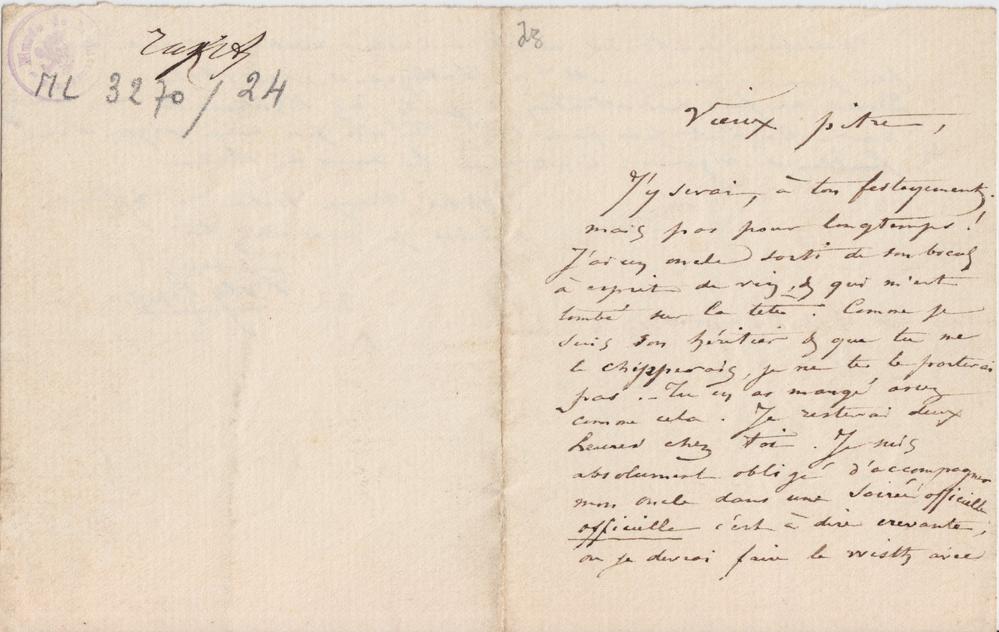 ML 3270/24
28
Vieux pitre,
J'y serai, à ton festoyement,
mais pas pour longtemps !
J'ai un oncle sorti de son bocal
à esprit de vin, & qui m'est
tombé sur la tête. Comme je
suis son héritier & que tu me
le chipperais, je ne te le porterai
pas. – Tu en as mangé assez
comme cela. Je resterai deux
heures chez toi. Je suis
absolument obligé d'accompagner
mon oncle dans une soirée officielle
officielle c'est à dire crevante,
où je devrai faire le wisth avec